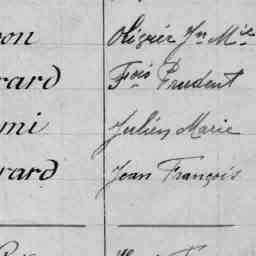 on Olizier Jn Mie
rard Fois Prudent
mi Julien Marie
rard Jean François